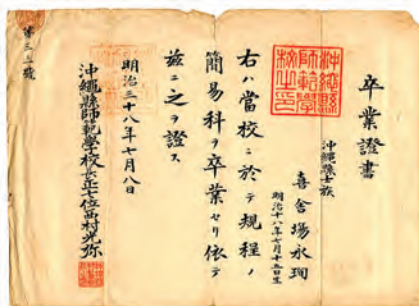 卒業證書
沖繩縣士族
喜舎場永珣
明治十八年七月十五日生
右ハ當校ニ於テ規程ノ
簡易科ヲ卒業セリ依テ
茲ニ之ヲ證ス
明治三十八年七月八日
沖繩縣師範學校長正七位西村光弥
沖繩縣
師範學
校之印